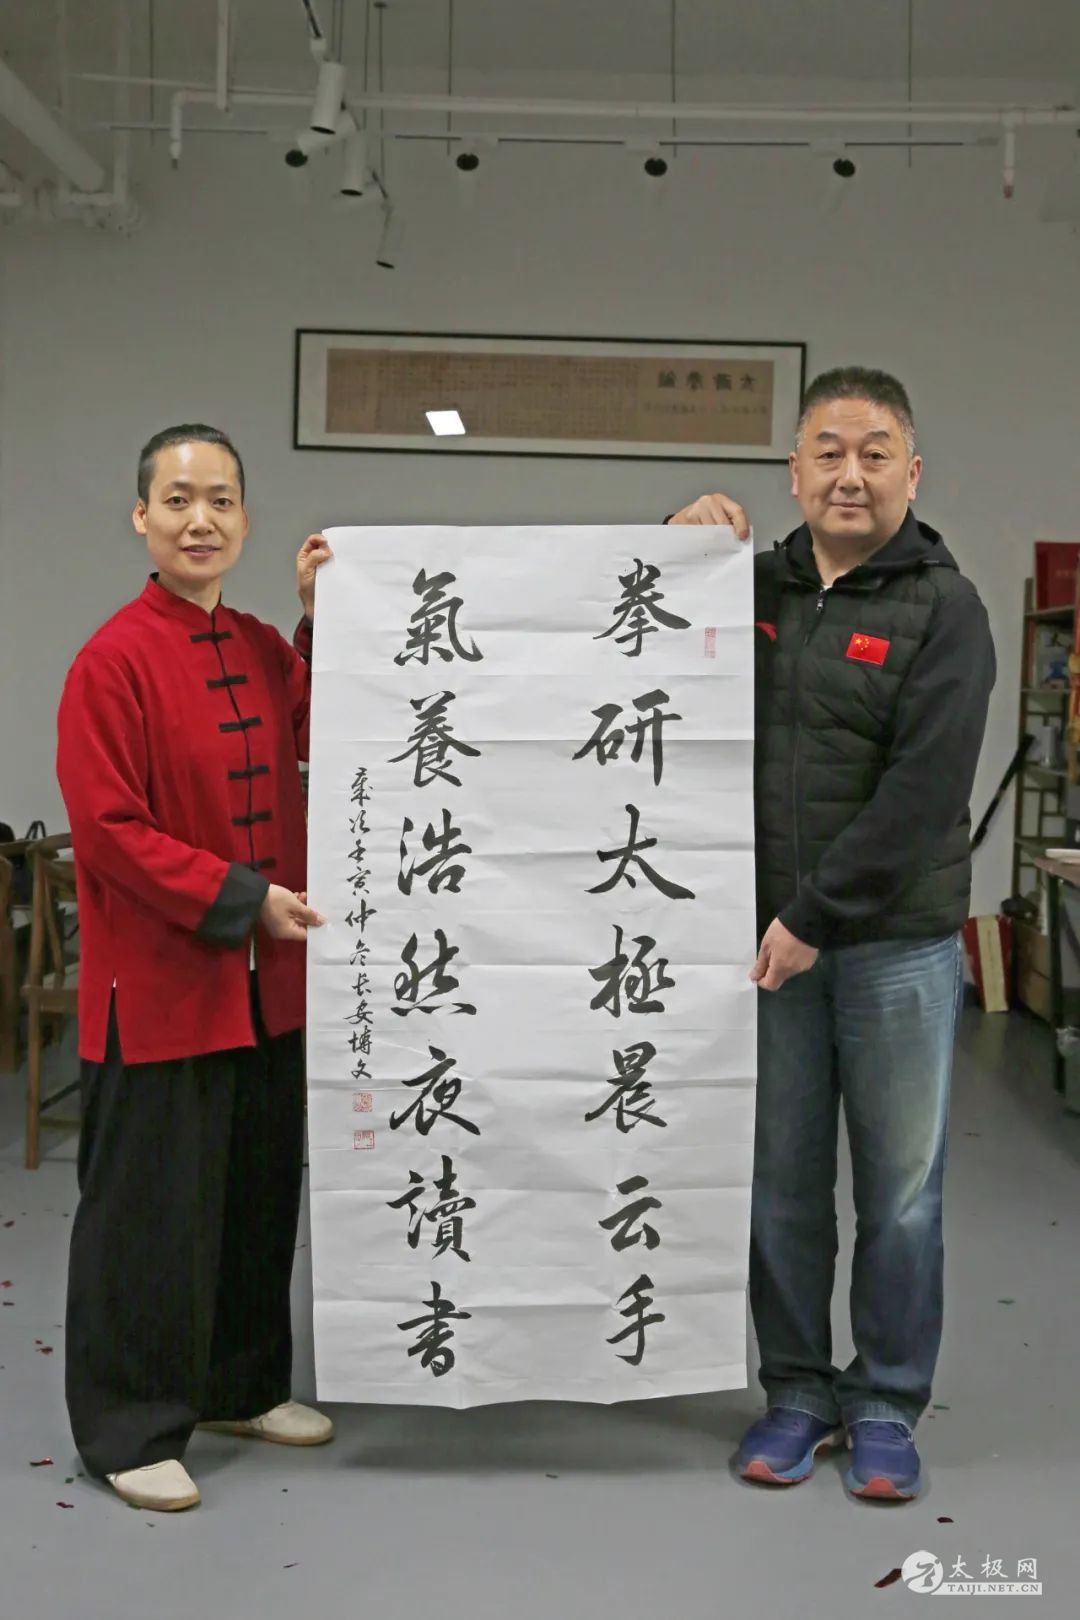 太極拳論
拳研太極晨云手
氣養浩然夜讀書
歲次壬寅仲冬長安博文
太极网
TAIJI.NET.CN